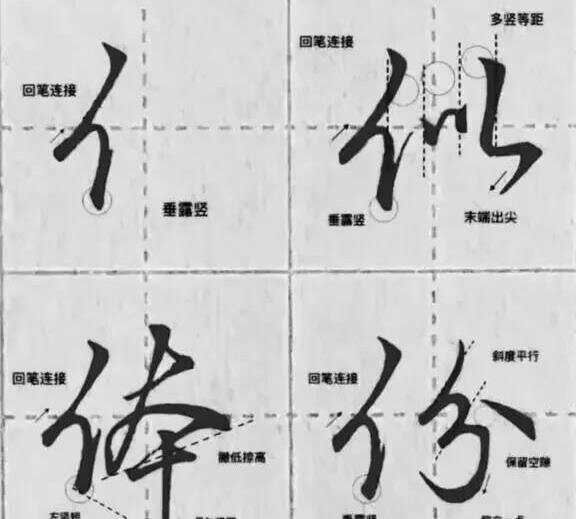 亻
回笔连接
垂露竖
似
多竖等距
回笔连接
垂露竖
末端出尖
体
回笔连接
撇低捺高
左竖短
份
回笔连接
斜度平行
保留空隙
垂露竖